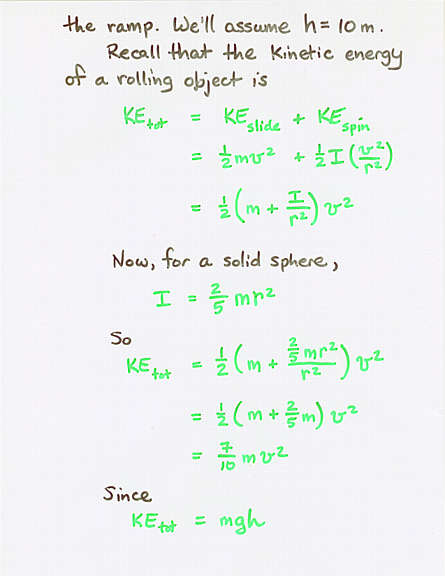 the ramp. We'll assume h = 10 m.
Recall that the Kinetic energy
of a rolling object is
KE_tot = KE_slide + KE_spin
= ½mv² + ½I(v²/r²)
= ½(m + I/r²)v²
Now, for a solid sphere,
I = 2/5 mr²
So
KE_tot = ½(m + (2/5 mr²)/r²)v²
= ½(m + 2/5 m)v²
= 7/10 mv²
Since
KE_tot = mgh